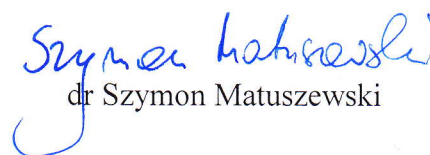 Szymon Matuszewski
dr Szymon Matuszewski